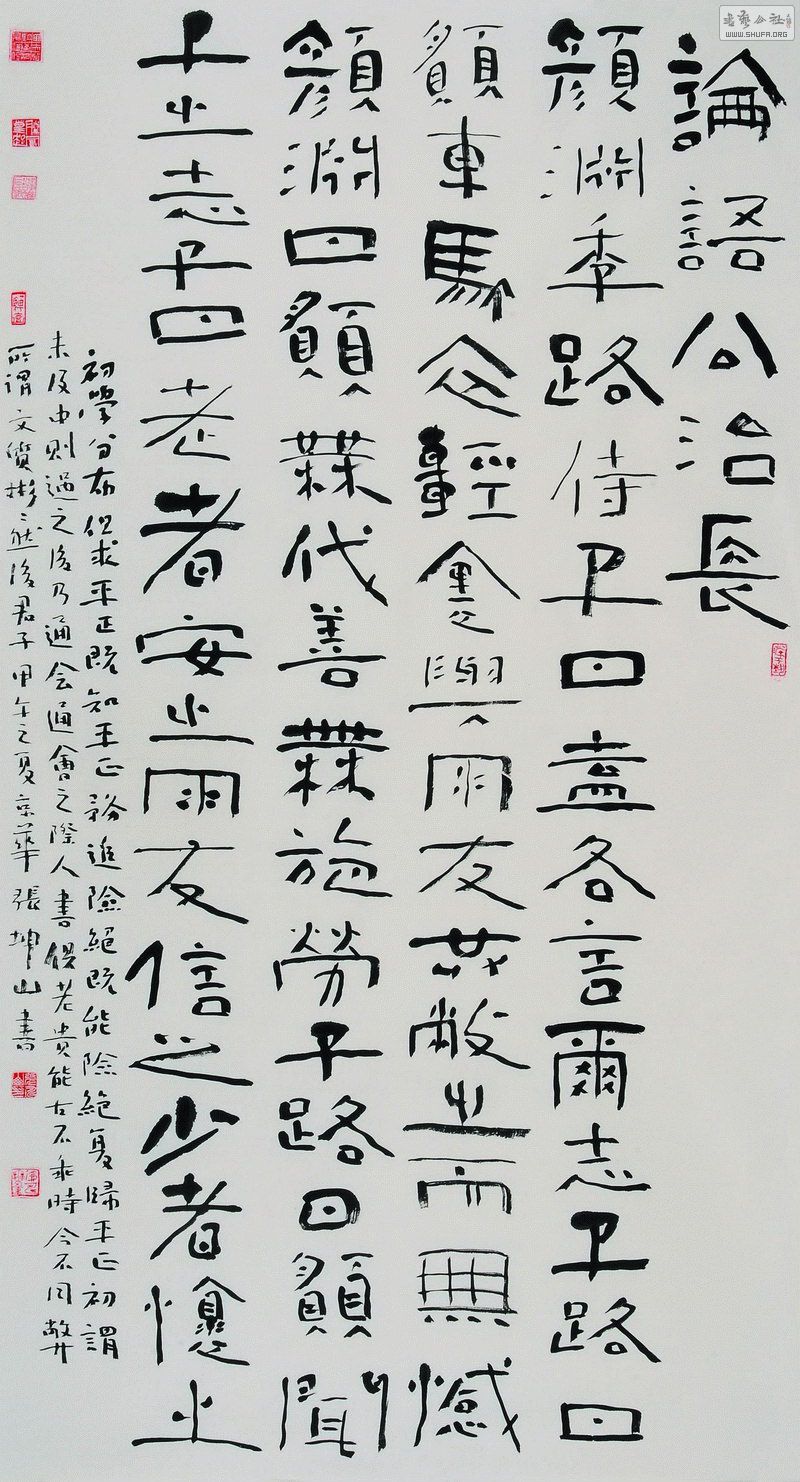 論語公冶長
顏淵季路侍子曰盍各言爾志子路曰
願車馬衣輕裘與朋友共敝之而無憾
顏淵曰願無伐善無施勞子路曰願聞
子之志子曰老者安之朋友信之少者懷之
初學分布但求平正既知平正務追險絕既能險絕復歸平正初謂
未及中則過之後乃通會通會之際人書俱老貴能古不乖時今不同弊
所謂文質彬〻然後君子甲午之夏京華張坤山書
書藝公社
WWW.SHUFA.ORG